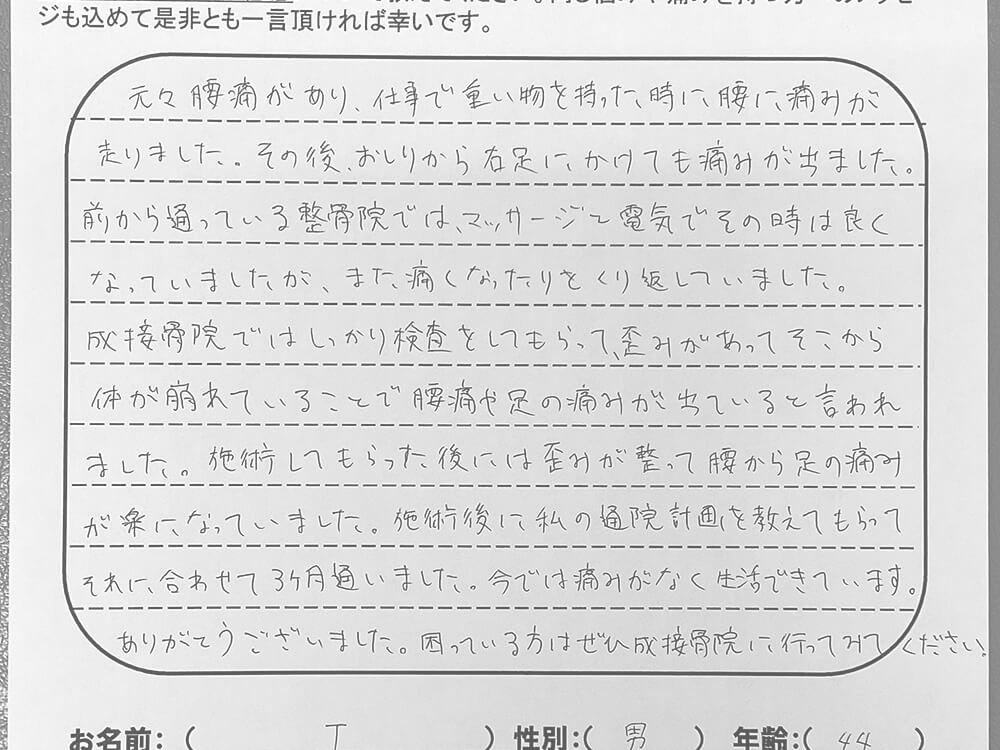 ジも込めて是非とも一言頂ければ幸いです。
元々腰痛があり、仕事で重い物を持った時に、腰に痛みが
走りました。その後、おしりから右足にかけても痛みが出ました。
前から通っている整骨院では、マッサージと電気でその時は良く
なっていましたが、また痛くなったりをくり返していました。
成接骨院ではしっかり検査をしてもらって、歪みがあってそこから
体が崩れていることで腰痛や足の痛みが出ていると言われ
ました。施術してもらった後には歪みが整って腰から足の痛み
が楽になっていました。施術後に私の通院計画を教えてもらって
それに合わせて3ヶ月通いました。今では痛みがなく生活できています。
ありがとうございました。困っている方はぜひ成接骨院に行ってみてください。
お名前:( T ) 性別:( 男 ) 年齢:( 44 )